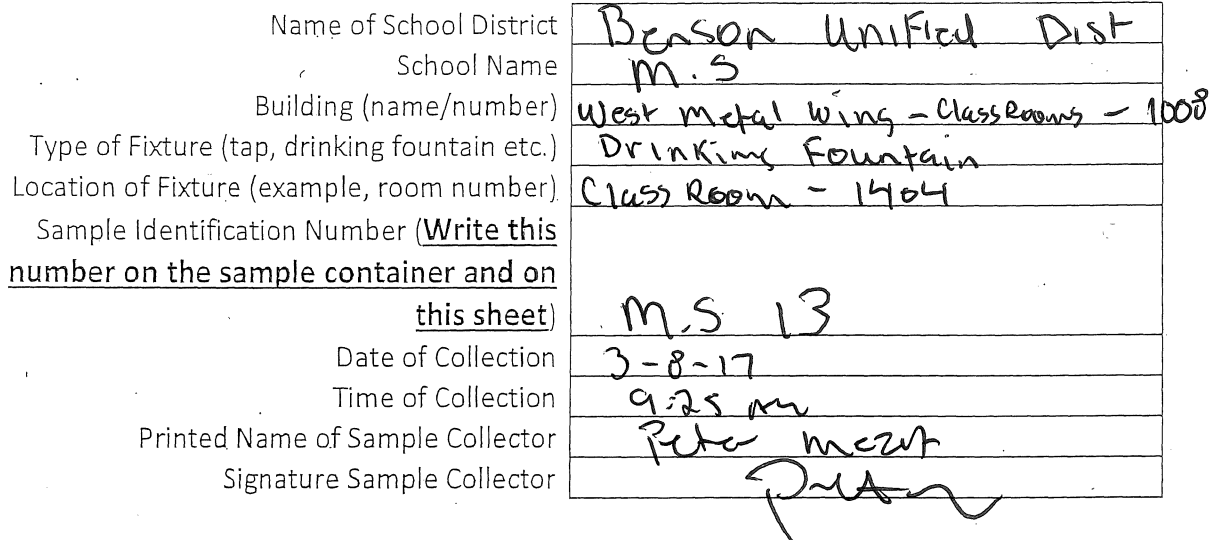 Name of School District Benson Unified Dist
School Name M.S
Building (name/number) West Metal Wing - Class Rooms - 1008
Type of Fixture (tap, drinking fountain etc.) Drinking Fountain
Location of Fixture (example, room number) Class Room - 1404
Sample Identification Number (Write this
number on the sample container and on
this sheet) M.S 13
Date of Collection 3-8-17
Time of Collection 9:25 AM
Printed Name of Sample Collector Peter
Signature Sample Collector